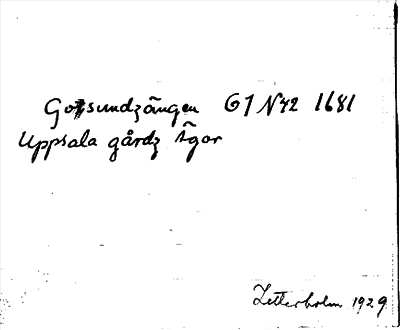 Gotsundzängen G1 N42 1681
Uppsala gårdz ägor
Zetterholm 1929